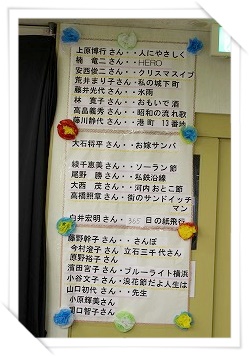 上原博行さん・・人にやさしく
楠 竜二さん・・HERO
安西俊二さん・・クリスマスイブ
荒井まり子さん・私の城下町
藤井光代さん・・氷雨
林 寛子さん・・おもいで酒
高畠義秀さん・・昭和の流れ歌
藤川静代さん・・港町 13番地
大石将平さん・・お嫁サンバ
綾千恵美さん・・ソーラン節
尾野 勝さん・・私鉄沿線
大西 茂さん・・河内おとこ節
高橋照章さん・・街のサンドイッチ
マン
臼井宏明さん・365日の紙飛行
藤野幹子さん・・さんぽ
今村澄子さん 立石三千代さん
原野裕子さん
濱田宮子さん・ブルーライト横浜
小谷文子さん・浪花節だよ人生は
山口初代さん・・先生
小原輝美さん
口智子さん